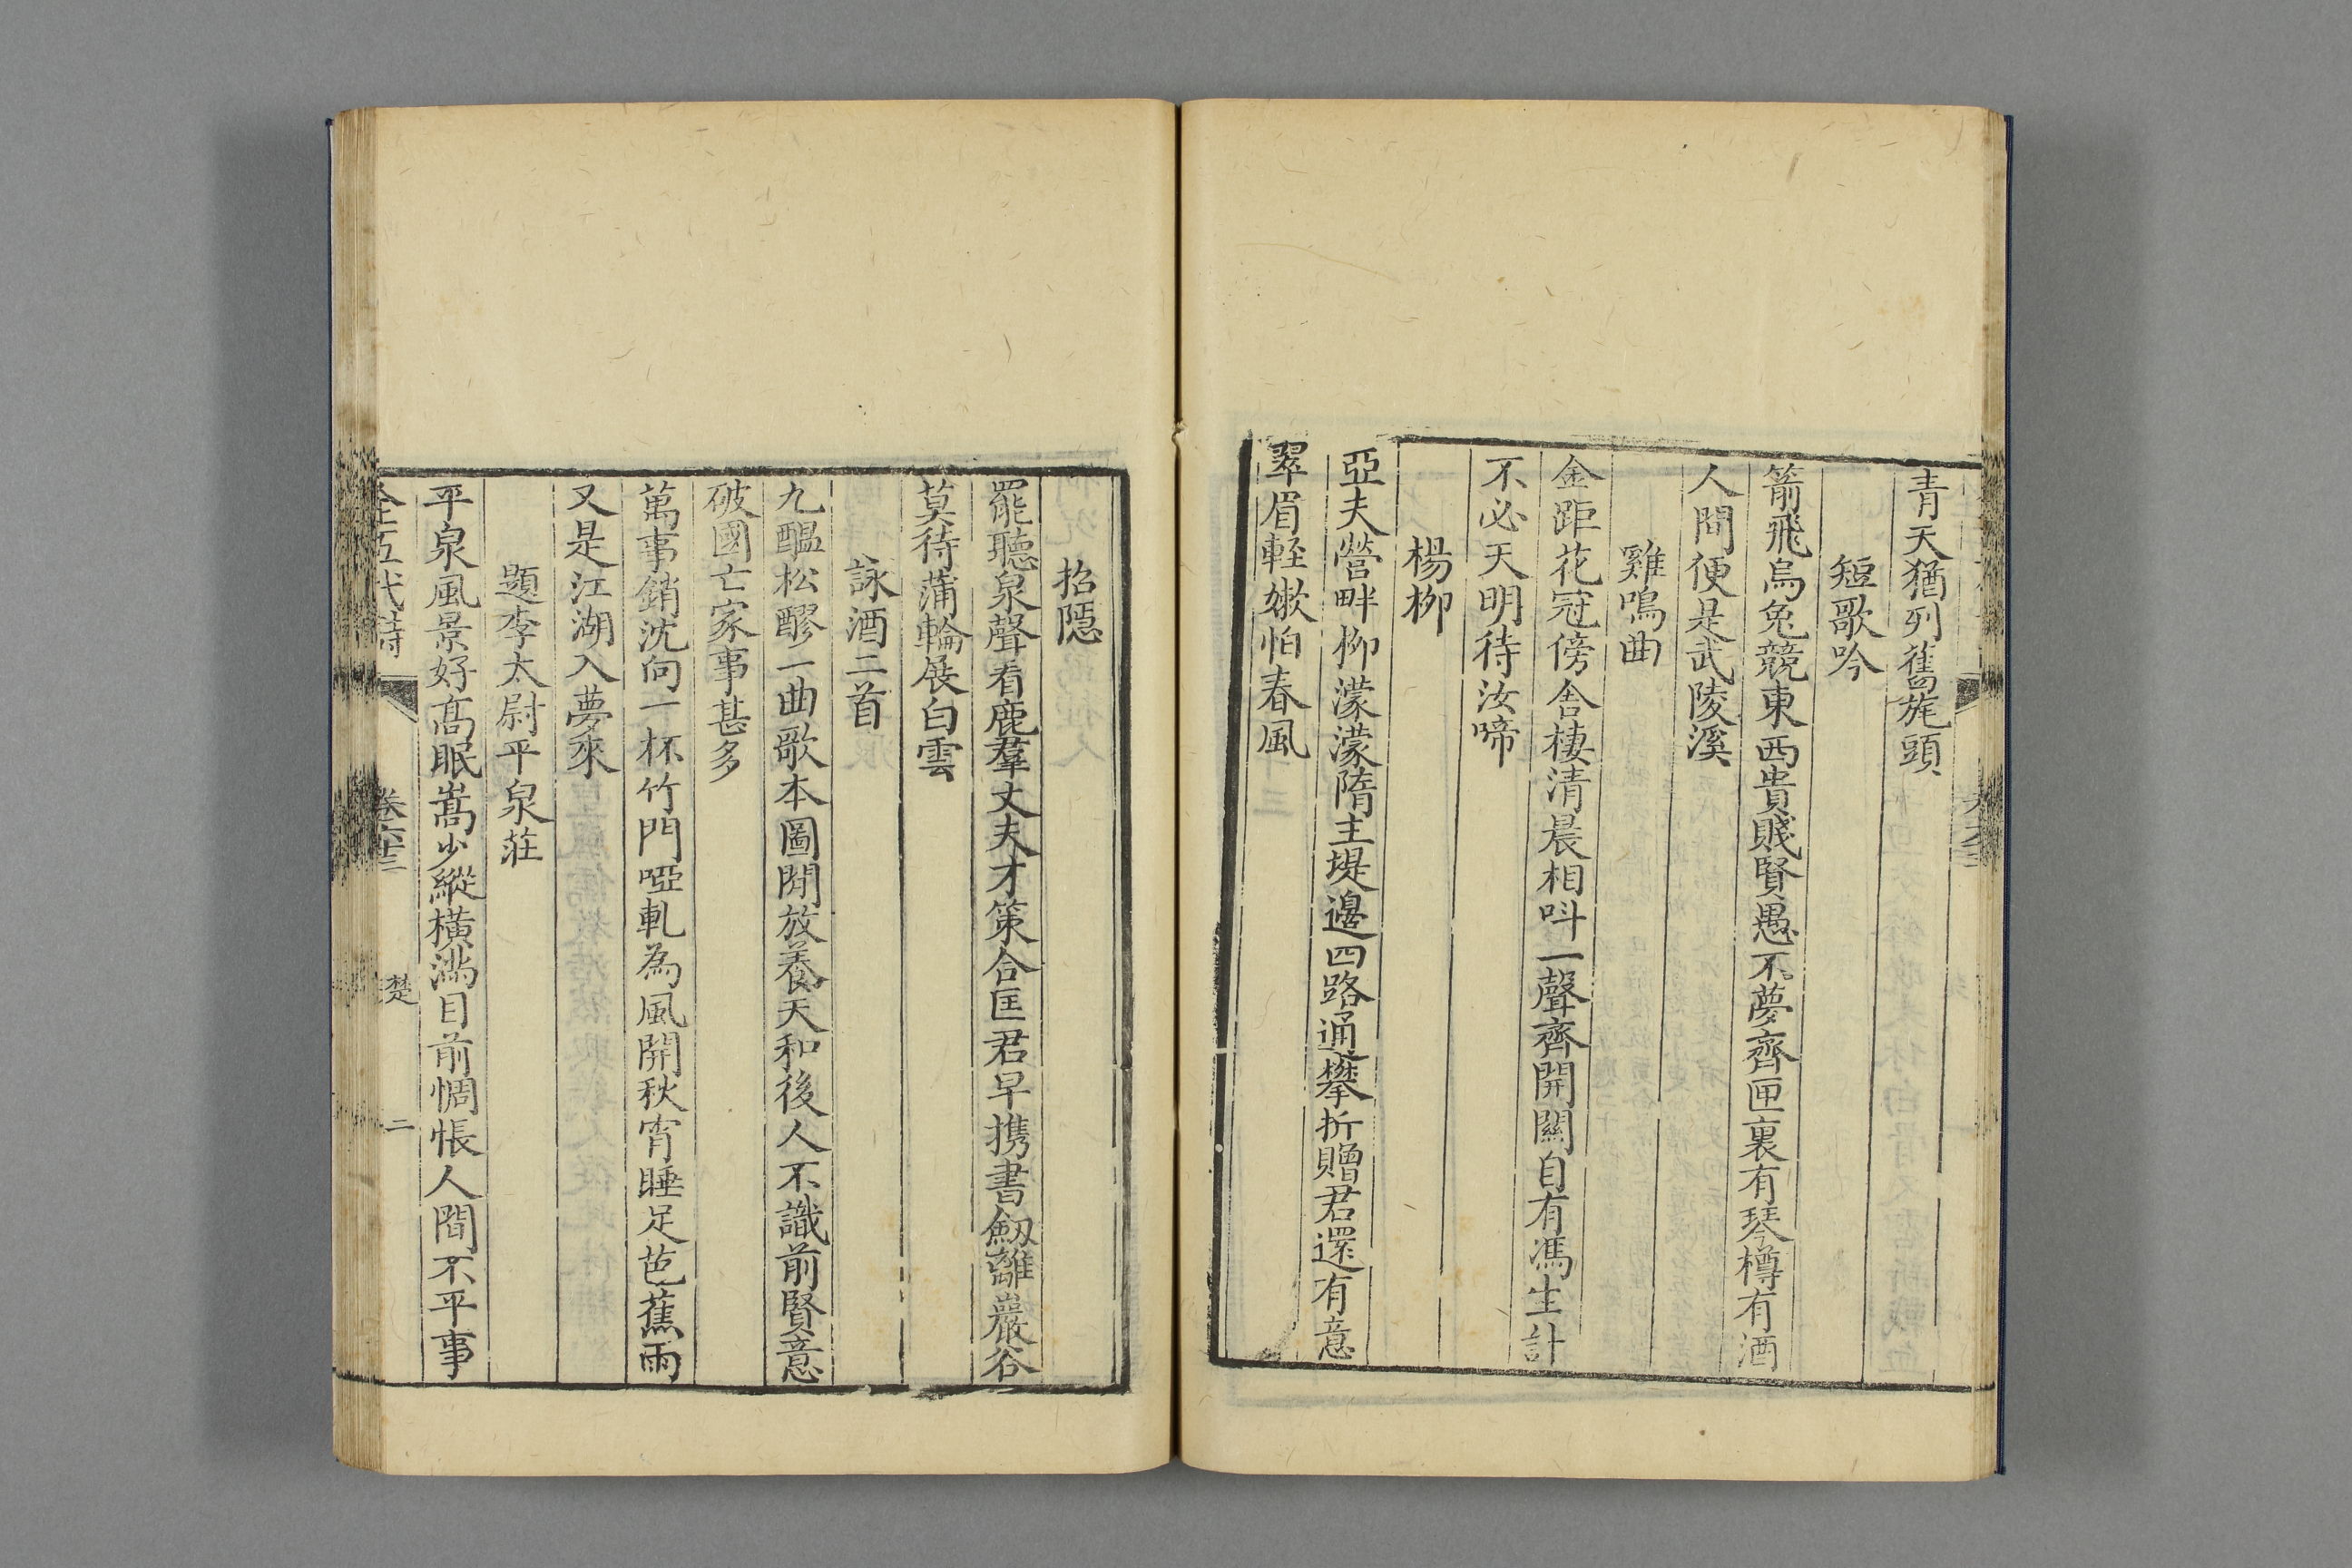 青天猶列舊旄頭
短歌吟
箭飛烏兔競東西貴賤賢愚不夢齊匣裏有琴樽有酒
人間便是武陵溪
雞鳴曲
金距花冠傍舍棲清晨相呌一聲齊開關自有馮生計
不必天明待汝啼
楊柳
亞夫營畔柳濛濛隋主堤邊四路通攀折贈君還有意
翠眉輕嫩怕春風
招隱
罷聽泉聲看鹿羣丈夫才策合匡君早携書劒離巖谷
莫待蒲輪展白雲
詠酒二首
九醞松醪一曲歌本圖閒放養天和後人不識前賢意
破國亡家事甚多
萬事銷沈向一杯竹門啞軋為風開秋宵睡足芭蕉雨
又是江湖入夢來
題李太尉平泉莊
平泉風景好高眠嵩少縱橫滿目前惆悵人間不平事
全五代詩 卷六十三 楚 二